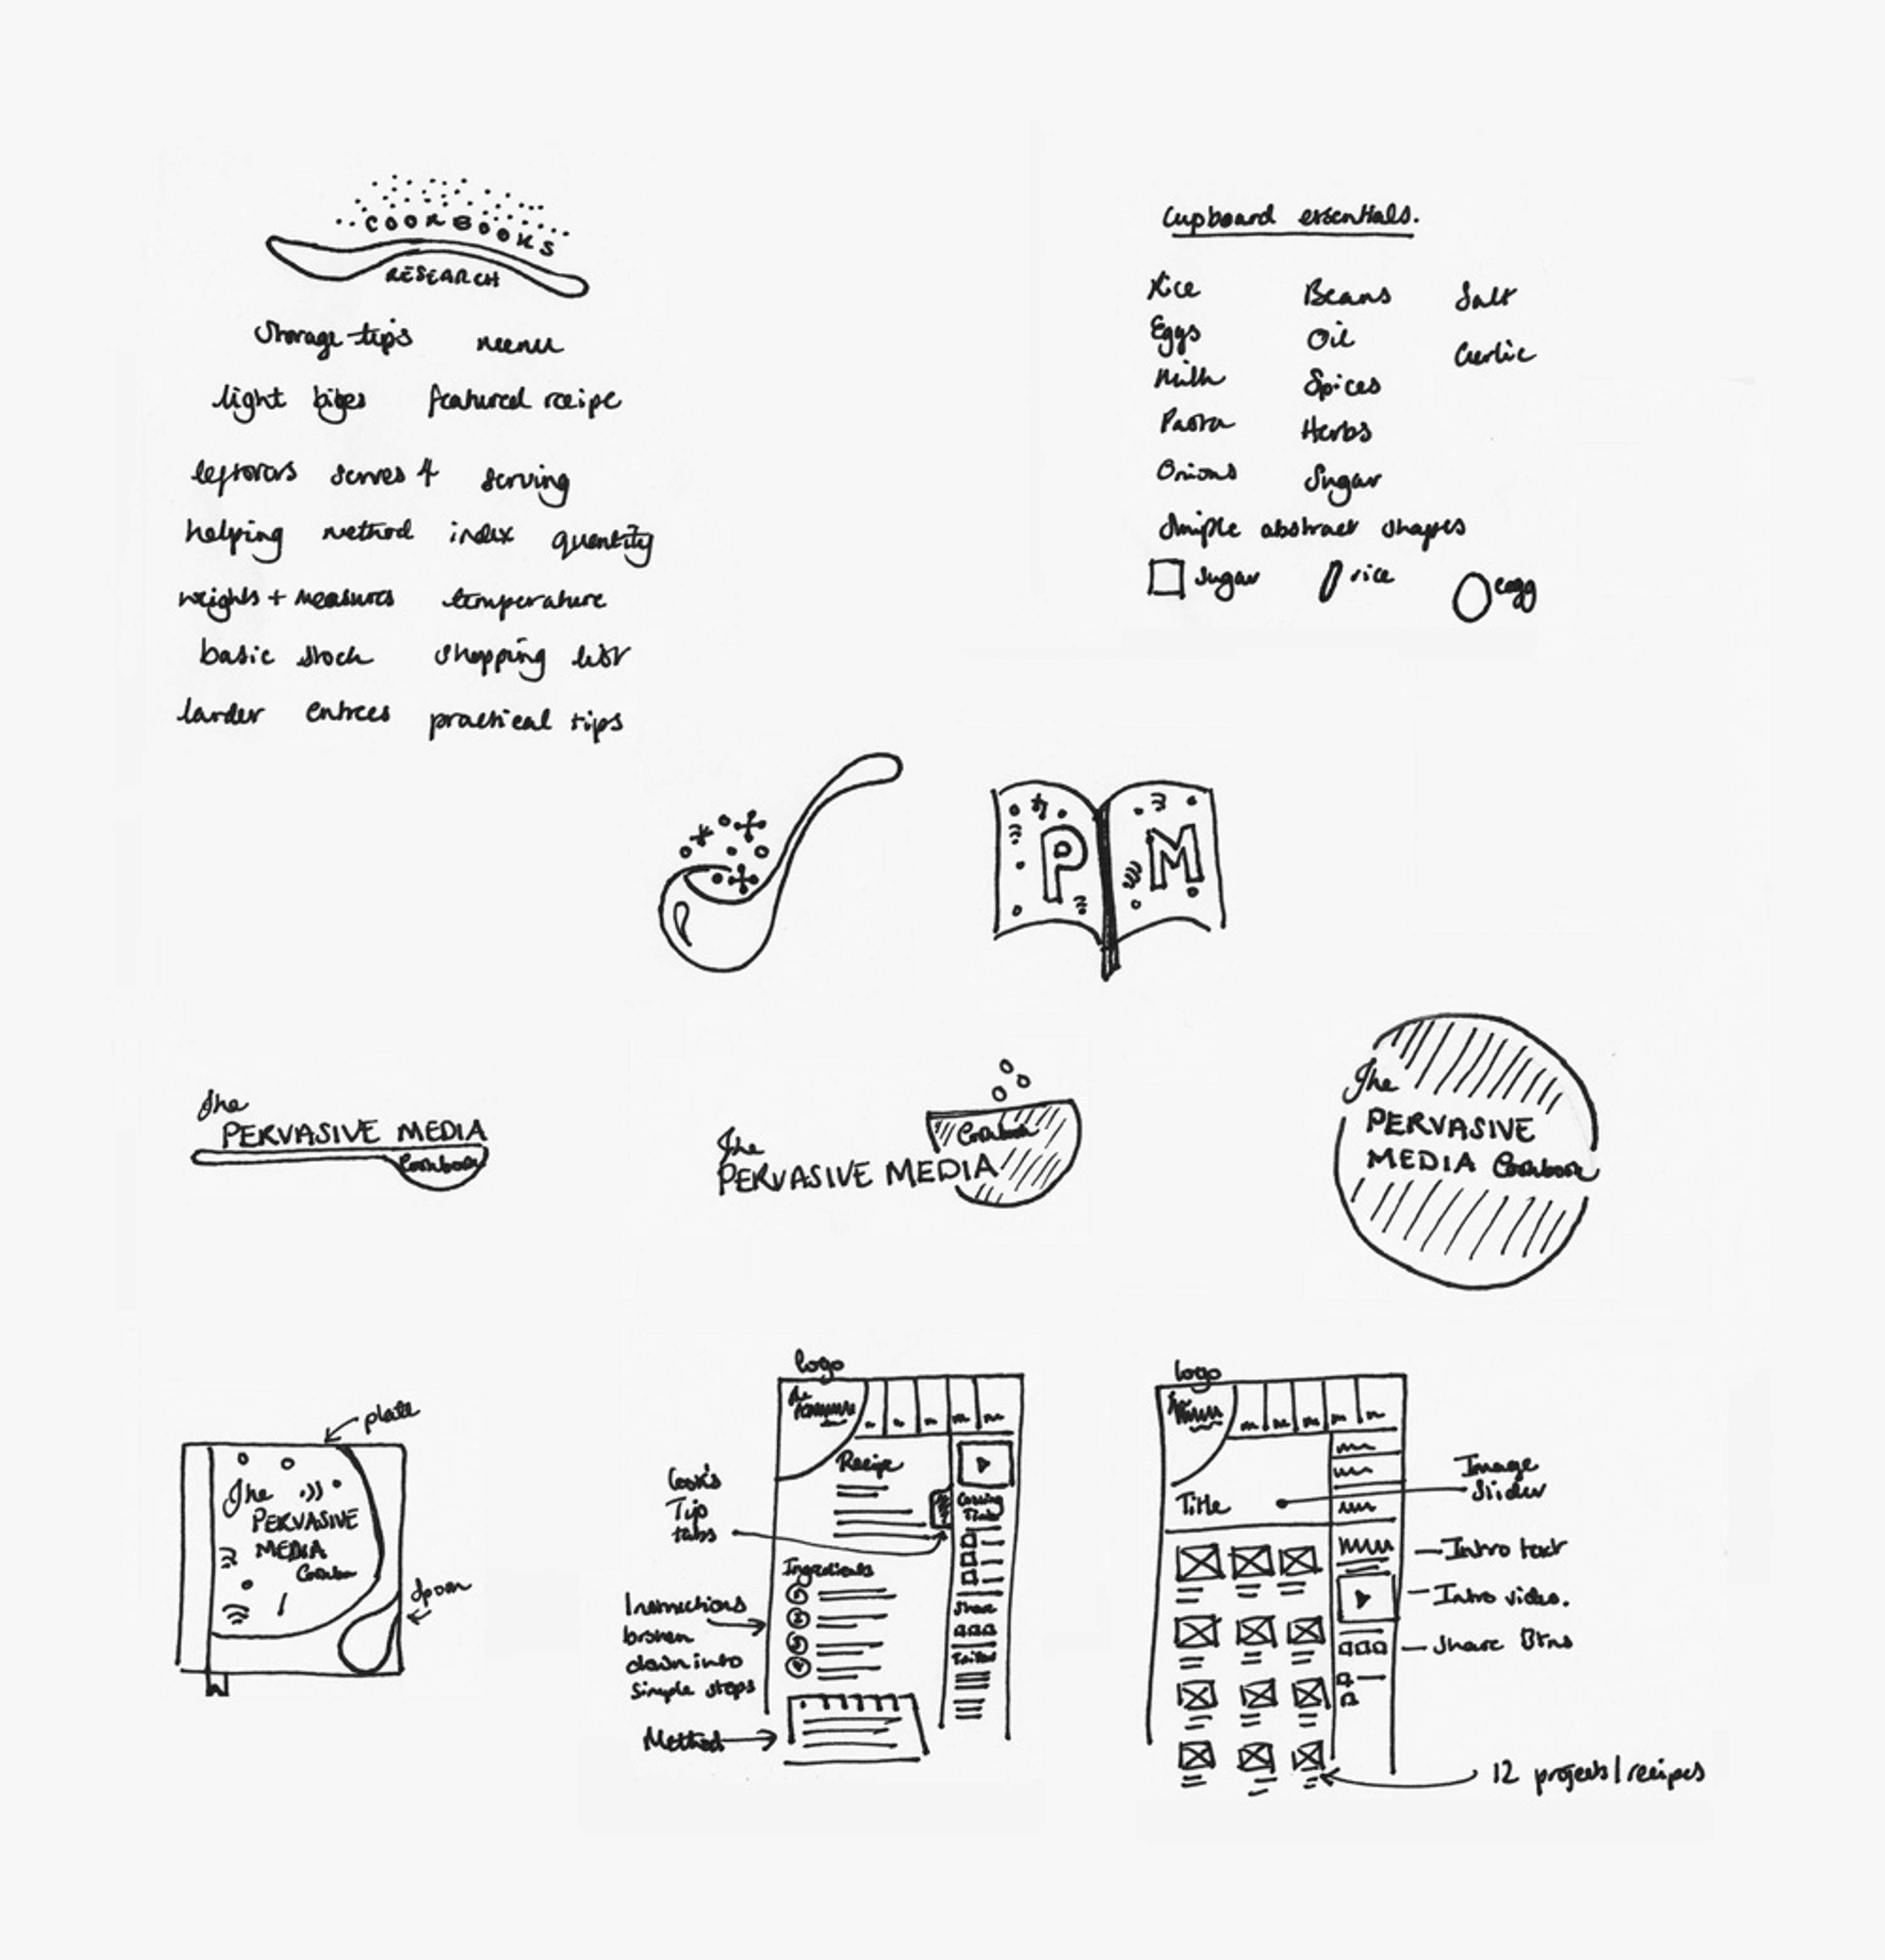 COOKBOOKS
RESEARCH
Storage tips menu
light bites featured recipe
leftovers serves 4 serving
helping method index quantity
weights + measures temperature
basic stock shopping list
larder entrees practical tips
Cupboard essentials.
Rice Beans Salt
Eggs Oil Garlic
Milk Spices
Pasta Herbs
Onions Sugar
Simple abstract shapes
sugar rice egg
P M
The
PERVASIVE MEDIA
Cookbook
The
PERVASIVE MEDIA
Cookbook
The
PERVASIVE
MEDIA Cookbook
plate
The
PERVASIVE
MEDIA
Spoon
logo
The
Recipe
Cook's
Tip
tabs
Ingredients
1
2
3
4
Instructions
broken
down into
simple steps
Method
Share
Twitter
logo
Title
Image
Slider
Intro text
Intro video.
Share Btns
12 projects/recipes